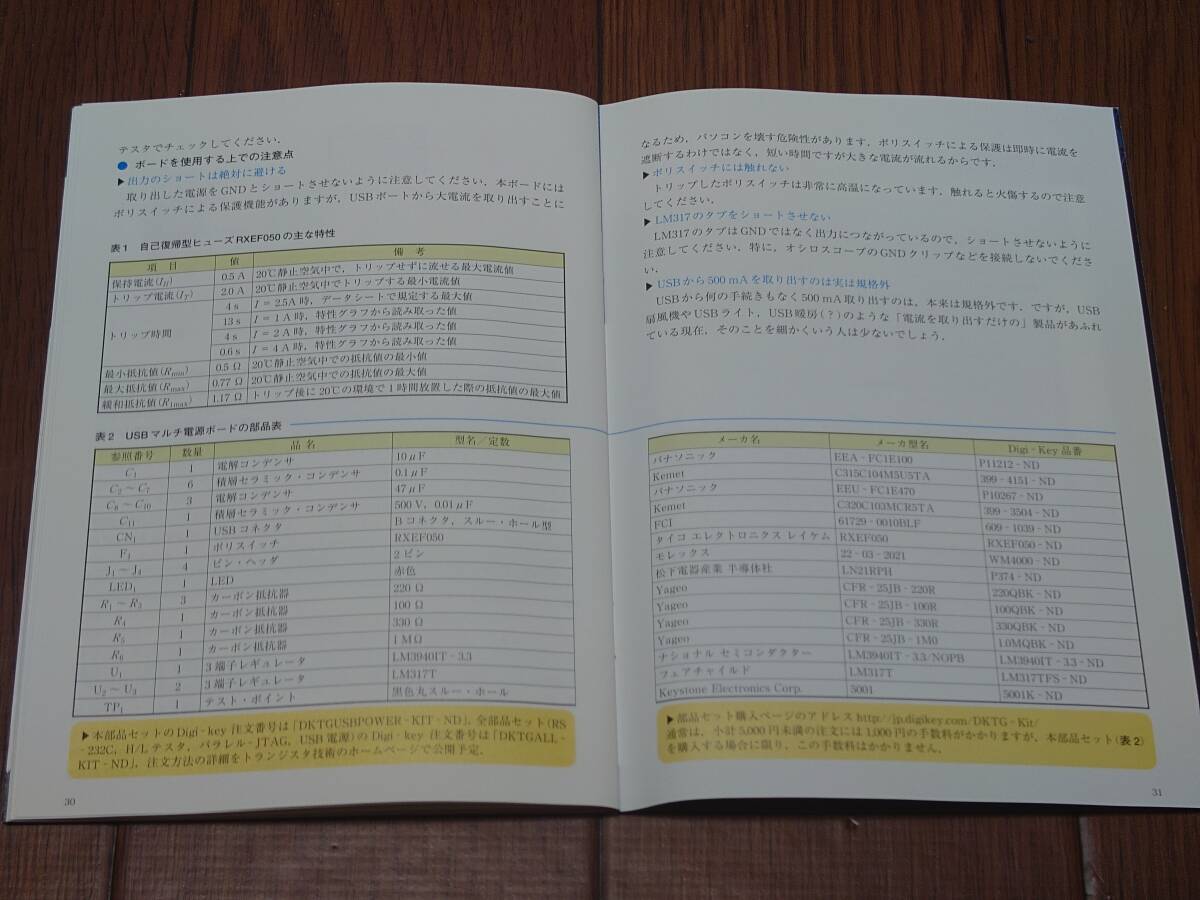 テスタでチェックしてください．
● ボードを使用する上での注意点
▶出力のショートは絶対に避ける
取り出した電源をGNDとショートさせないように注意してください．本ボードには
ポリスイッチによる保護機能がありますが，USBポートから大電流を取り出すことに
表1 自己復帰型ヒューズRXEF050の主な特性
項 目 値 備 考
保持電流(IH) 0.5 A 20℃静止空気中で，トリップせずに流せる最大電流値
トリップ電流(IT) 2.0 A 20℃静止空気中でトリップする最小電流値
トリップ時間 4 s I = 2.5A時，データシートで規定する最大値
13 s I = 1 A時，特性グラフから読み取った値
4 s I = 2 A時，特性グラフから読み取った値
0.6 s I = 4 A時，特性グラフから読み取った値
最小抵抗値(Rmin) 0.5 Ω 20℃静止空気中での抵抗値の最小値
最大抵抗値(Rmax) 0.77 Ω 20℃静止空気中での抵抗値の最大値
緩和抵抗値(R1max) 1.17 Ω トリップ後に20℃の環境で1時間放置した際の抵抗値の最大値
表2 USBマルチ電源ボードの部品表
参照番号 数量 品 名 型名／定数
C1 1 電解コンデンサ 10μF
C2 ～ C7 6 積層セラミック・コンデンサ 0.1μF
C8 ～ C10 3 電解コンデンサ 47μF
C11 1 積層セラミック・コンデンサ 500 V，0.01μF
CN1 1 USBコネクタ Bコネクタ，スルー・ホール型
F1 1 ポリスイッチ RXEF050
J1 ～ J4 4 ピン・ヘッダ 2ピン
LED1 1 LED 赤色
R1 ～ R3 3 カーボン抵抗器 220 Ω
R4 1 カーボン抵抗器 100 Ω
R5 1 カーボン抵抗器 330 Ω
R6 1 カーボン抵抗器 1 MΩ
U1 1 3端子レギュレータ LM3940IT‐3.3
U2 ～ U3 2 3端子レギュレータ LM317T
TP1 1 テスト・ポイント 黒色丸スルー・ホール
▶本部品セットのDigi‐key 注文番号は「DKTGUSBPOWER‐KIT‐ND」，全部品セット(RS
‐232C，H/Lテスタ，パラレル‐JTAG，USB電源)のDigi‐key 注文番号は「DKTGALL‐
KIT‐ND」，注文方法の詳細をトランジスタ技術のホームページで公開予定．
30
なるため，パソコンを壊す危険性があります．ポリスイッチによる保護は即時に電流を
遮断するわけではなく，短い時間ですが大きな電流が流れるからです．
▶ポリスイッチには触れない
トリップしたポリスイッチは非常に高温になっています．触れると火傷するので注意
してください．
▶LM317のタブをショートさせない
LM317のタブはGNDではなく出力につながっているので，ショートさせないように
注意してください．特に，オシロスコープのGNDクリップなどを接続しないでくださ
い．
▶USBから500 mAを取り出すのは実は規格外
USBから何の手続きもなく500 mA取り出すのは，本来は規格外です．ですが，USB
扇風機やUSBライト，USB暖房(？)のような「電流を取り出すだけの」製品があふれ
ている現在，そのことを細かくいう人は少ないでしょう．
メーカ名 メーカ型名 Digi‐Key 品番
パナソニック EEA‐FC1E100 P11212‐ND
Kemet C315C104M5U5TA 399‐4151‐ND
パナソニック EEU‐FC1E470 P10267‐ND
Kemet C320C103MCR5TA 399‐3504‐ND
FCI 61729‐0010BLF 609‐1039‐ND
タイコ エレクトロニクス レイケム RXEF050 RXEF050‐ND
モレックス 22‐03‐2021 WM4000‐ND
松下電器産業 半導体社 LN21RPH P374‐ND
Yageo CFR‐25JB‐220R 220QBK‐ND
Yageo CFR‐25JB‐100R 100QBK‐ND
Yageo CFR‐25JB‐330R 330QBK‐ND
Yageo CFR‐25JB‐1M0 1.0MQBK‐ND
ナショナル セミコンダクター LM3940IT‐3.3/NOPB LM3940IT‐3.3‐ND
フェアチャイルド LM317T LM317TFS‐ND
Keystone Electronics Corp. 5001 5001K‐ND
▶部品セット購入ページのアドレス http://jp.digikey.com/DKTG‐Kit/
通常は，小計5,000円未満の注文には1,000円の手数料がかかりますが，本部品セット(表2)
を購入する場合に限り，この手数料はかかりません．
31